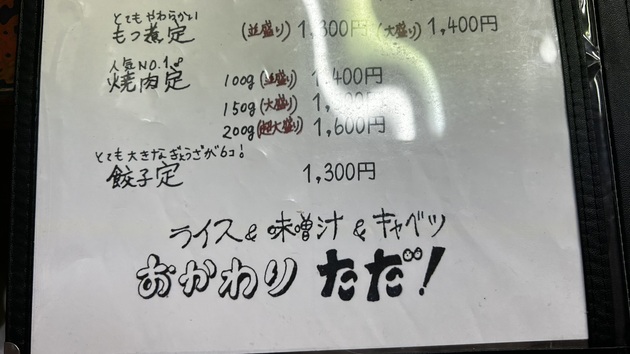 とてもやわらかい
もつ煮定 (並盛り) 1,300円 (大盛り) 1,400円
人気NO.1♂
焼肉定 100g(並盛り) 1,400円
150g(大盛り)
200g(超大盛り) 1,600円
とても大きなぎょうざが6コ!
餃子定 1,300円
ライス&味噌汁&キャベツ
おかわり ただ!